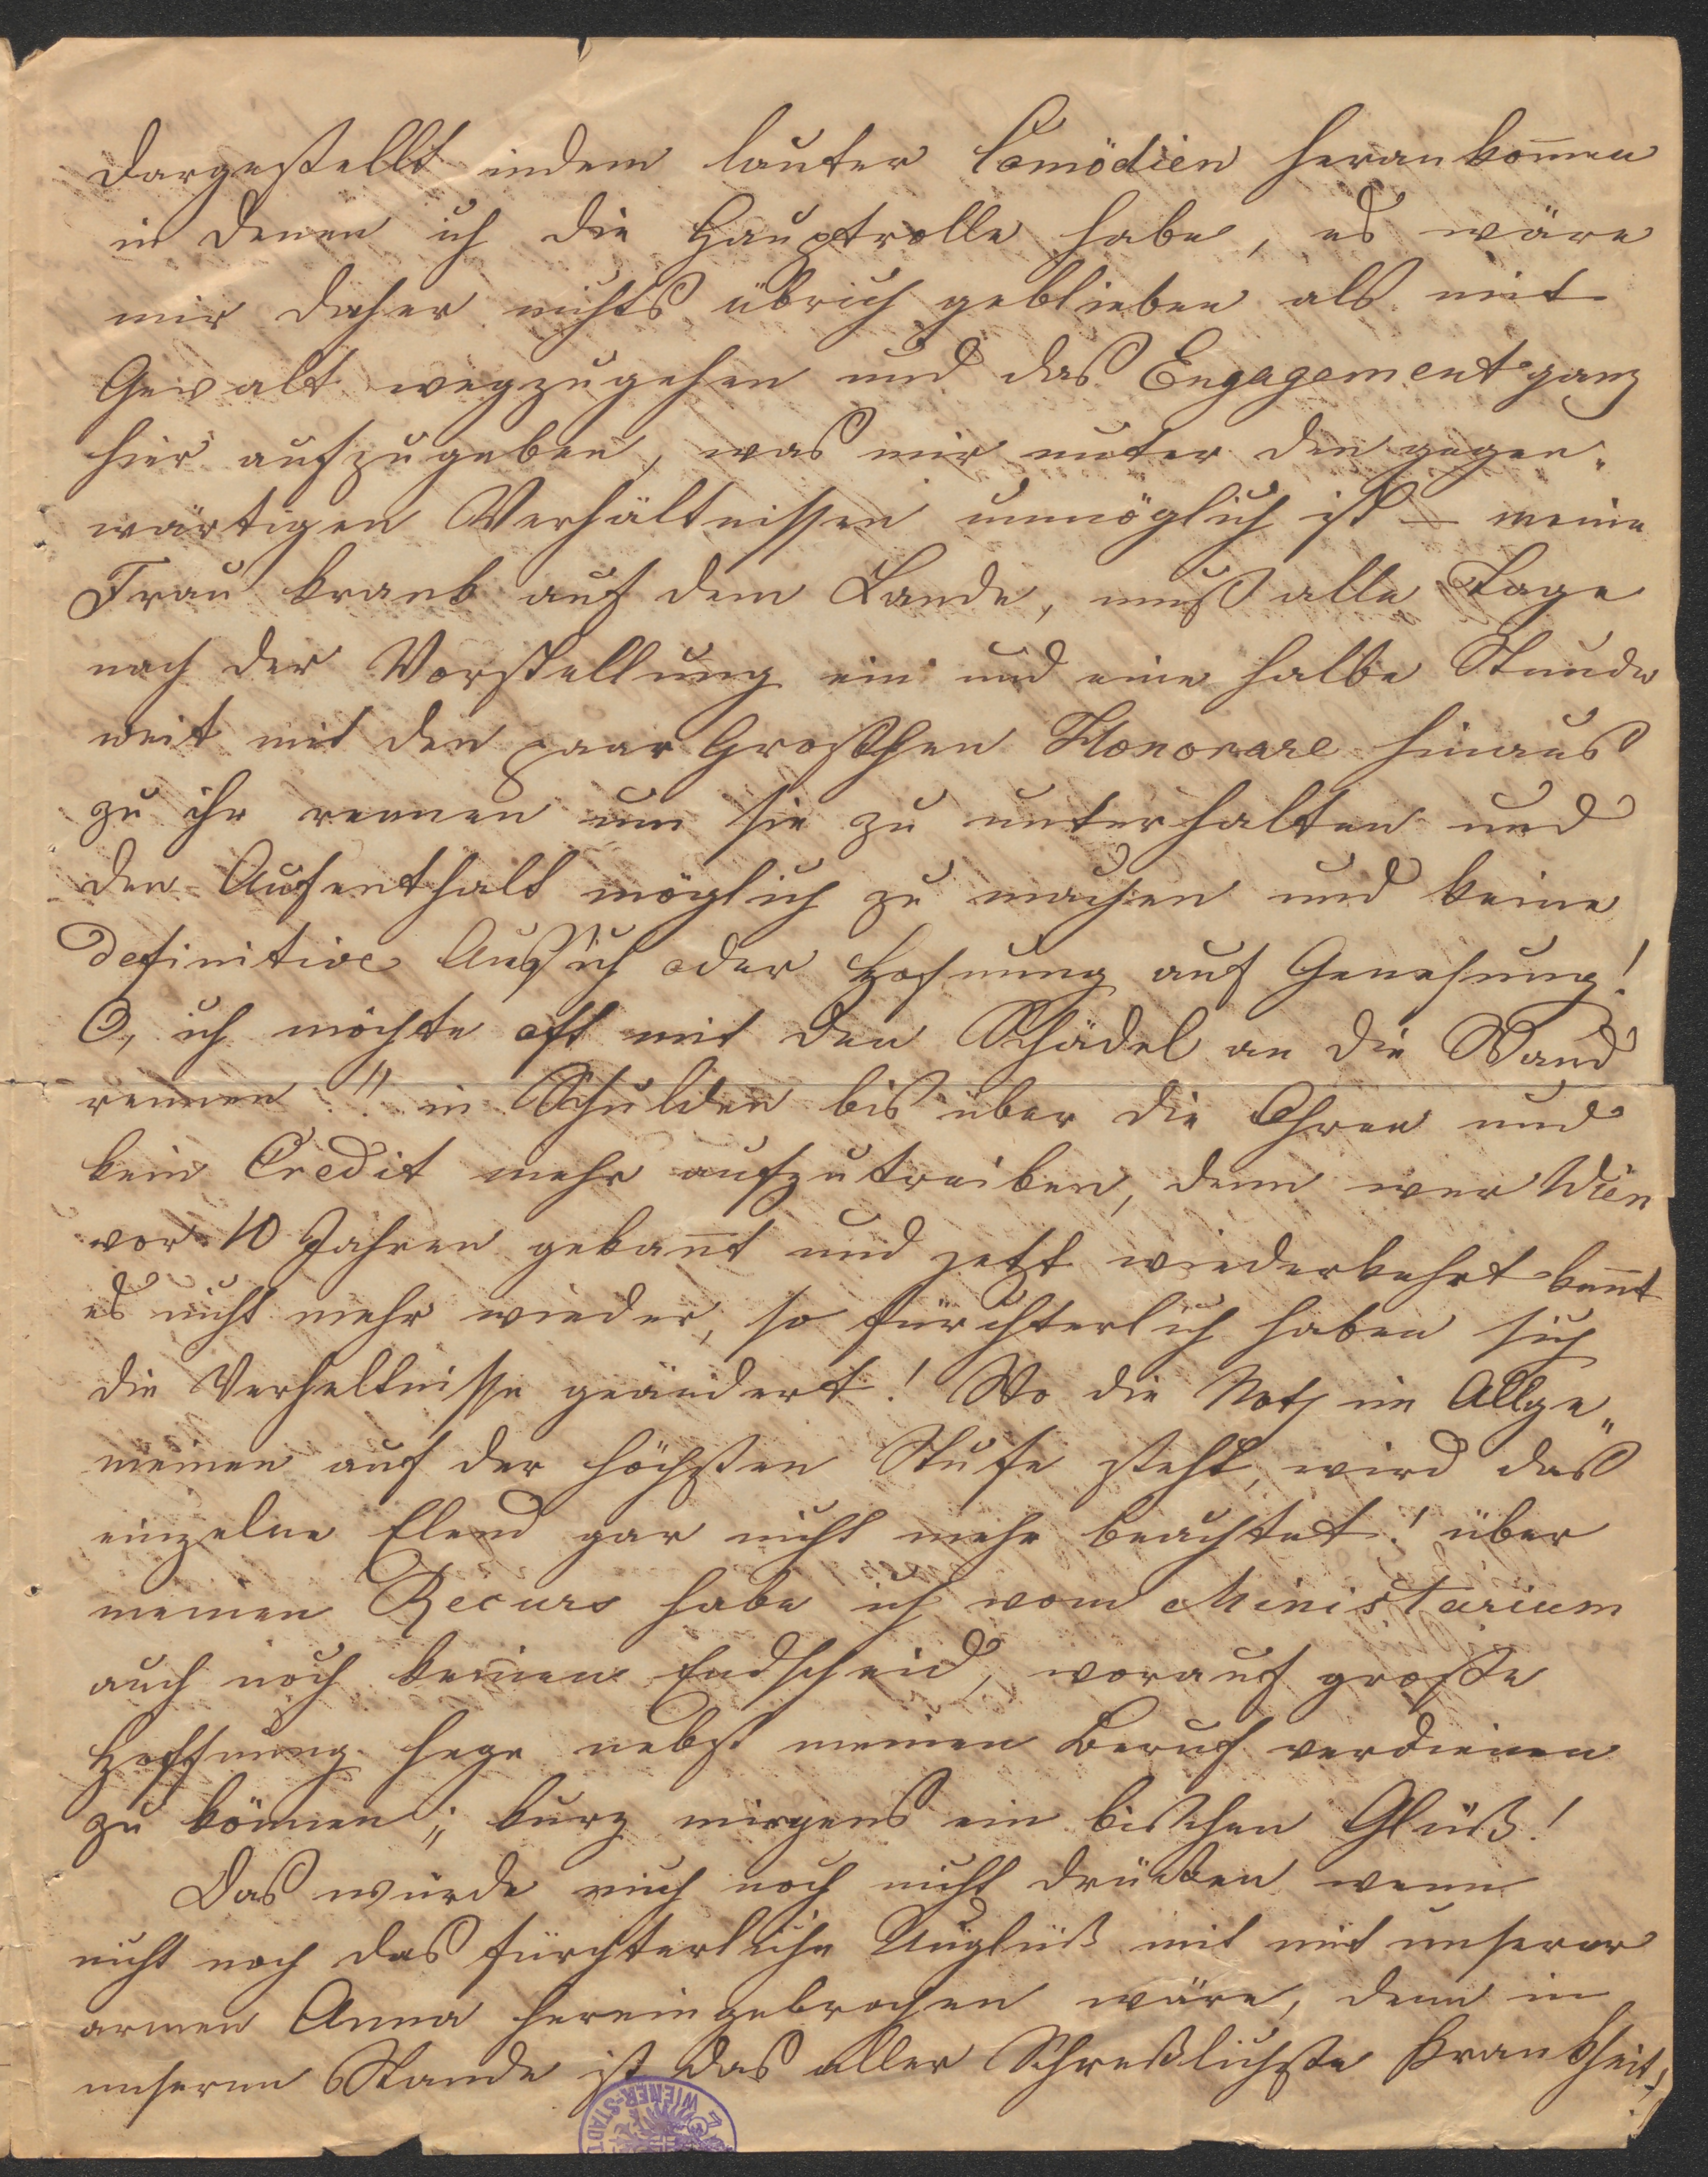 dargestellt indem lauter Comödien heran kom̄en
in denen ich die Hauptrolle habe, es wäre
mir daher nichts übrich geblieben als mit
Gewalt wegzugehen und das Engagement ganz
hier aufzugeben, was mir unter den gegen„
wärtigen Verhältnissen unmöglich ist – meine
Frau krank auf dem Lande, muß alle Tage
nach der Vorstellung ein und eine halbe Stunde
weit mit den paar Groschen Honorare hinaus
zu ihr rennen um sie zu unterhalten und
den Aufenthalt möglich zu machen und keine
definitive Aussich oder Hofnung auf Genesung!
O, ich möchte oft mit den Schädel an die Wand
rennen!! in Schulden bis über die Ohren und
kein Credit mehr aufzutreiben, denn wer Wien
vor 10 Jahren gekan̄t und jetzt wiederkehrt ken̄t
es nicht mehr wieder, so fürchterlich haben sich
die Verheltnisse geändert! Wo die Noth im Allge„
meinen auf der höchsten Stufe steht, wird das
einzelne Elend gar nicht mehr beachtet! über
meinen Recurs habe ich vom Ministerium
auch noch keinen Endscheid, worauf große
Hoffnung hege nebst meinen Beruf verdienen
zu können; kurz nirgens ein bischen Glück!
Das würde mich noch nicht drücken wenn
nicht noch das fürchterliche Unglück mit mit unserer
armen Anna hereingebrochen wäre, denn in
unseren Stande ist das aller Schrecklichste Krankheit!
WIENER-STADT